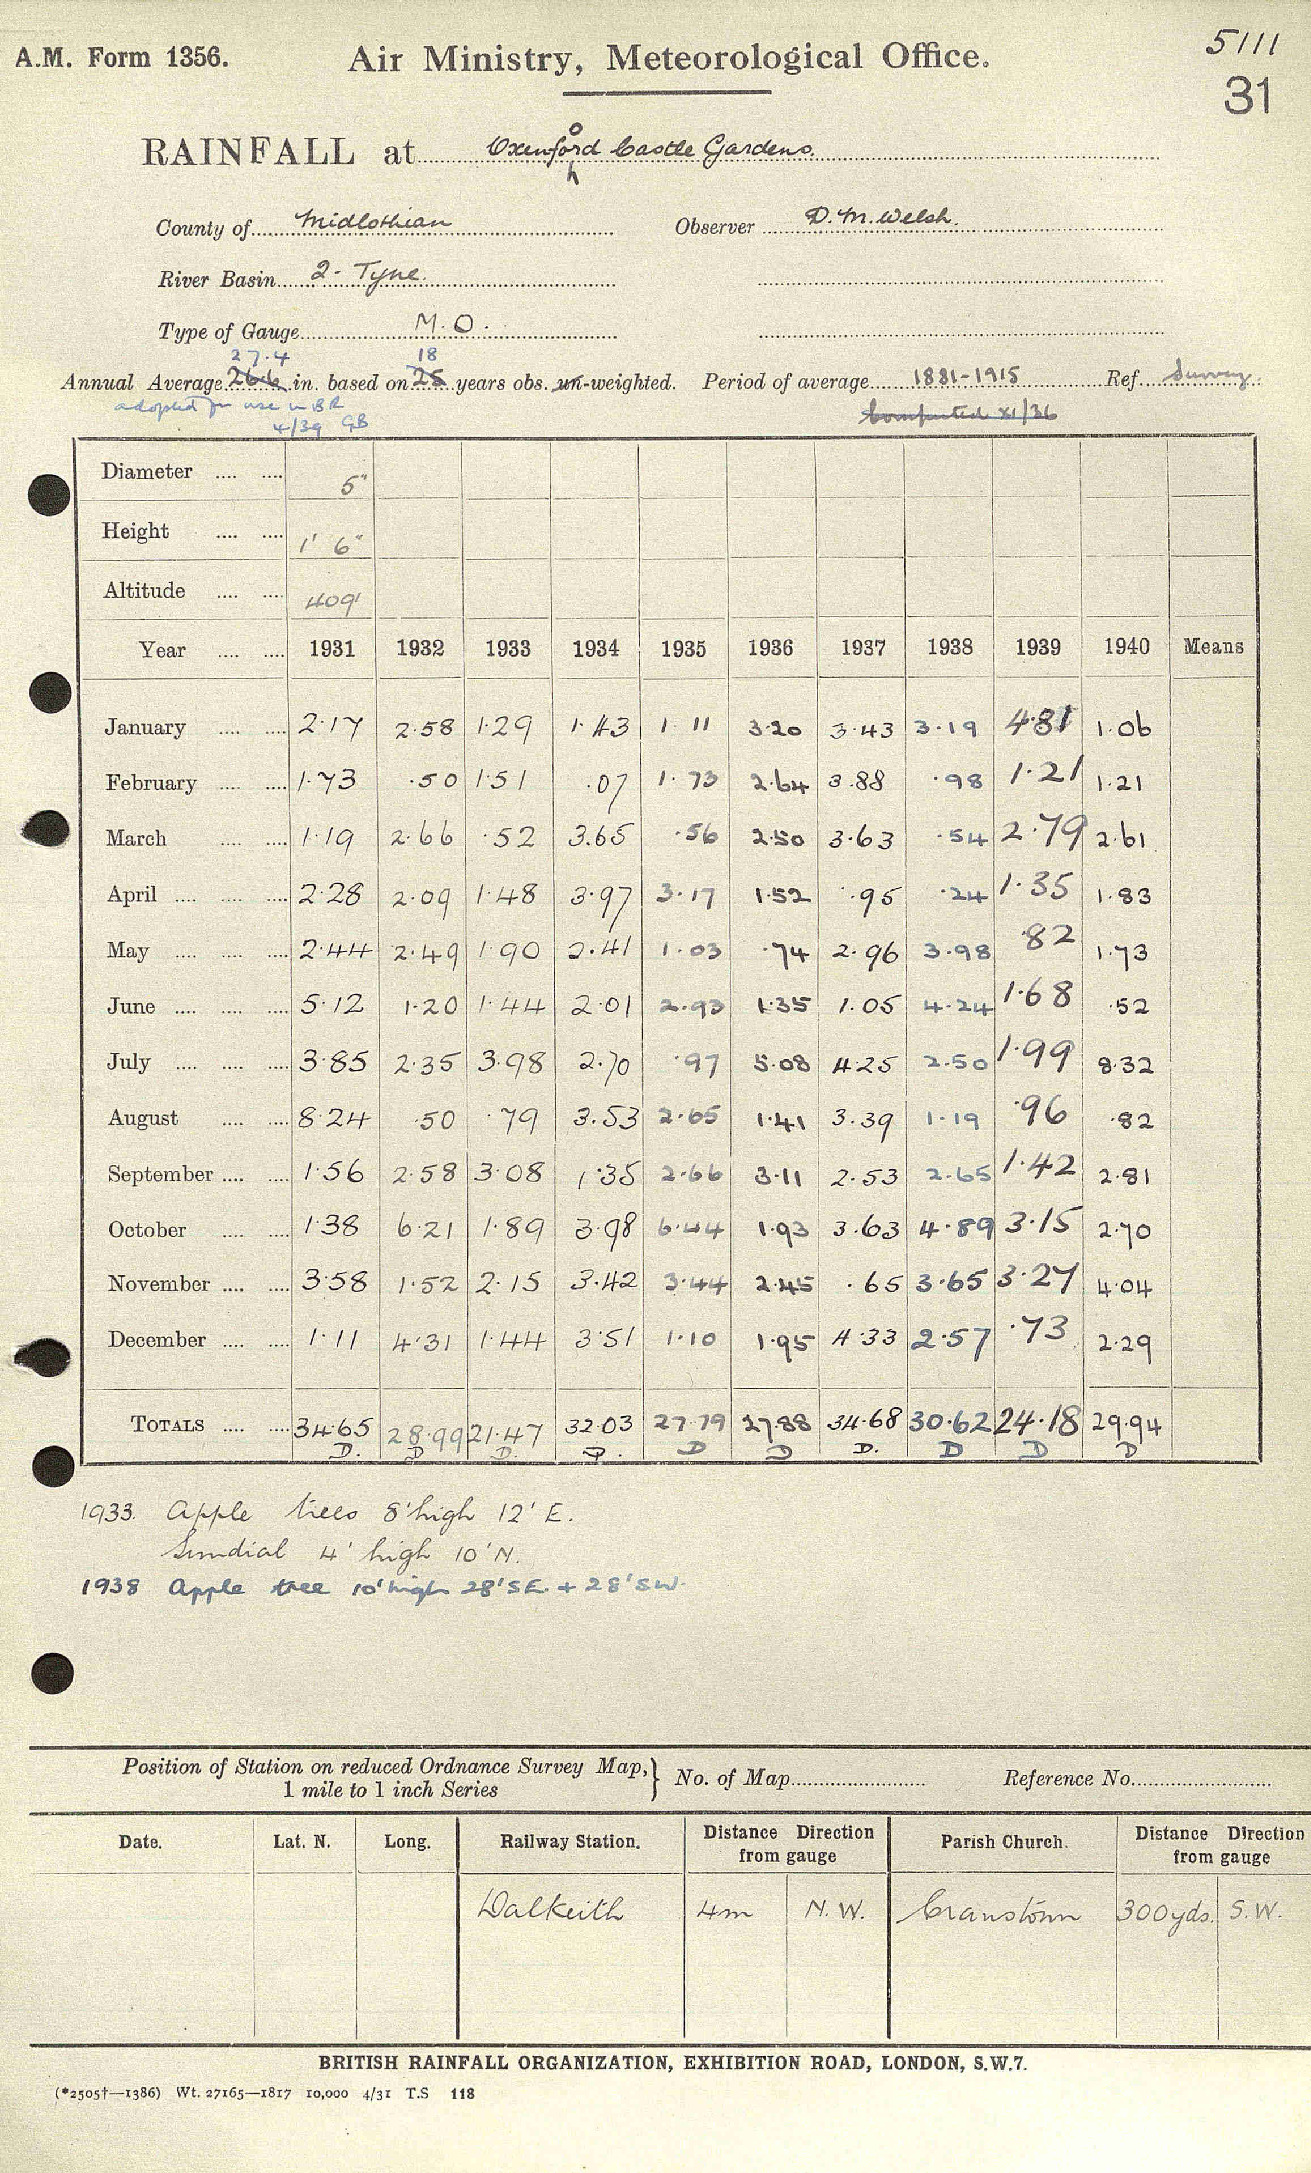 A.M. Form 1356. Air Ministry, Meteorological Office. 5111
31
RAINFALL at Oxenfoord Castle Gardens
h
County of Midlothian Observer D. M. Welsh.
River Basin 2 - Tyne.
Type of Gauge M. O.
27.4 18
Annual Average 26.6 in. based on 25 years obs. un-weighted. Period of average 1881-1915 Ref. Survey
adopted for use in BR Computed XI/36
4/39 GB
Diameter 5"
Height 1' 6"
Altitude 409'
Year 1931 1932 1933 1934 1935 1936 1937 1938 1939 1940 Means
January 2.17 2.58 1.29 1.43 1.11 3.20 3.43 3.19 4.81 1.06
February 1.73 .50 1.51 .07 1.73 2.64 3.88 .98 1.21 1.21
March 1.19 2.66 .52 3.65 .56 2.50 3.63 .54 2.79 2.61
April 2.28 2.09 1.48 3.97 3.17 1.52 .95 .24 1.35 1.83
May 2.44 2.49 1.90 2.41 1.03 .74 2.96 3.98 .82 1.73
June 5.12 1.20 1.44 2.01 2.93 1.35 1.05 4.24 1.68 .52
July 3.85 2.35 3.98 2.70 .97 5.08 4.25 2.50 1.99 8.32
August 8.24 .50 .79 3.53 2.65 1.41 3.39 1.19 .96 .82
September 1.56 2.58 3.08 1.35 2.66 3.11 2.53 2.65 1.42 2.81
October 1.38 6.21 1.89 3.98 6.44 1.93 3.63 4.89 3.15 2.70
November 3.58 1.52 2.15 3.42 3.44 2.45 .65 3.65 3.27 4.04
December 1.11 4.31 1.44 3.51 1.10 1.95 4.33 2.57 .73 2.29
TOTALS 34.65 28.99 21.47 32.03 27.79 27.88 34.68 30.62 24.18 29.94
D. D D. D. D D D. D D D
1933. Apple trees 8' high 12' E.
Sundial 4' high 10' N.
1938 Apple tree 10' high 28' SE. + 28' SW.
Position of Station on reduced Ordnance Survey Map, 1 mile to 1 inch Series } No. of Map Reference No.
Date. Lat. N. Long. Railway Station. Distance Direction from gauge Parish Church. Distance Direction from gauge
Dalkeith 4m N.W. Cranstoun 300yds. S.W.
BRITISH RAINFALL ORGANIZATION, EXHIBITION ROAD, LONDON, S.W.7.
(*2505†—1386) Wt. 27165—1817 10,000 4/31 T.S 118